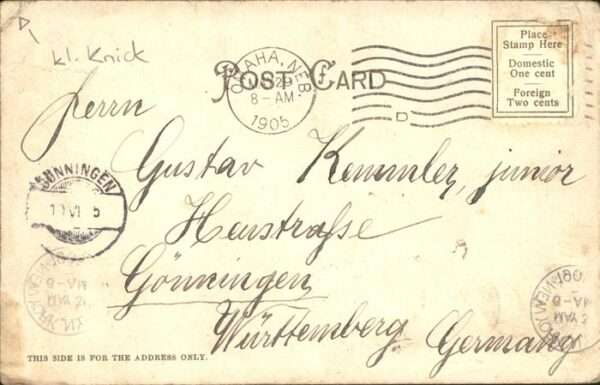 kl. Knick
Place
Stamp Here
Domestic
One cent
Foreign
Two cents
POST CARD
OMAHA, NEB.
8-AM
1905
D
Herrn
Gustav Kemmler, junior
GÖNNINGEN
Heustraße
Gönningen
Württemberg Germany
THIS SIDE IS FOR THE ADDRESS ONLY.